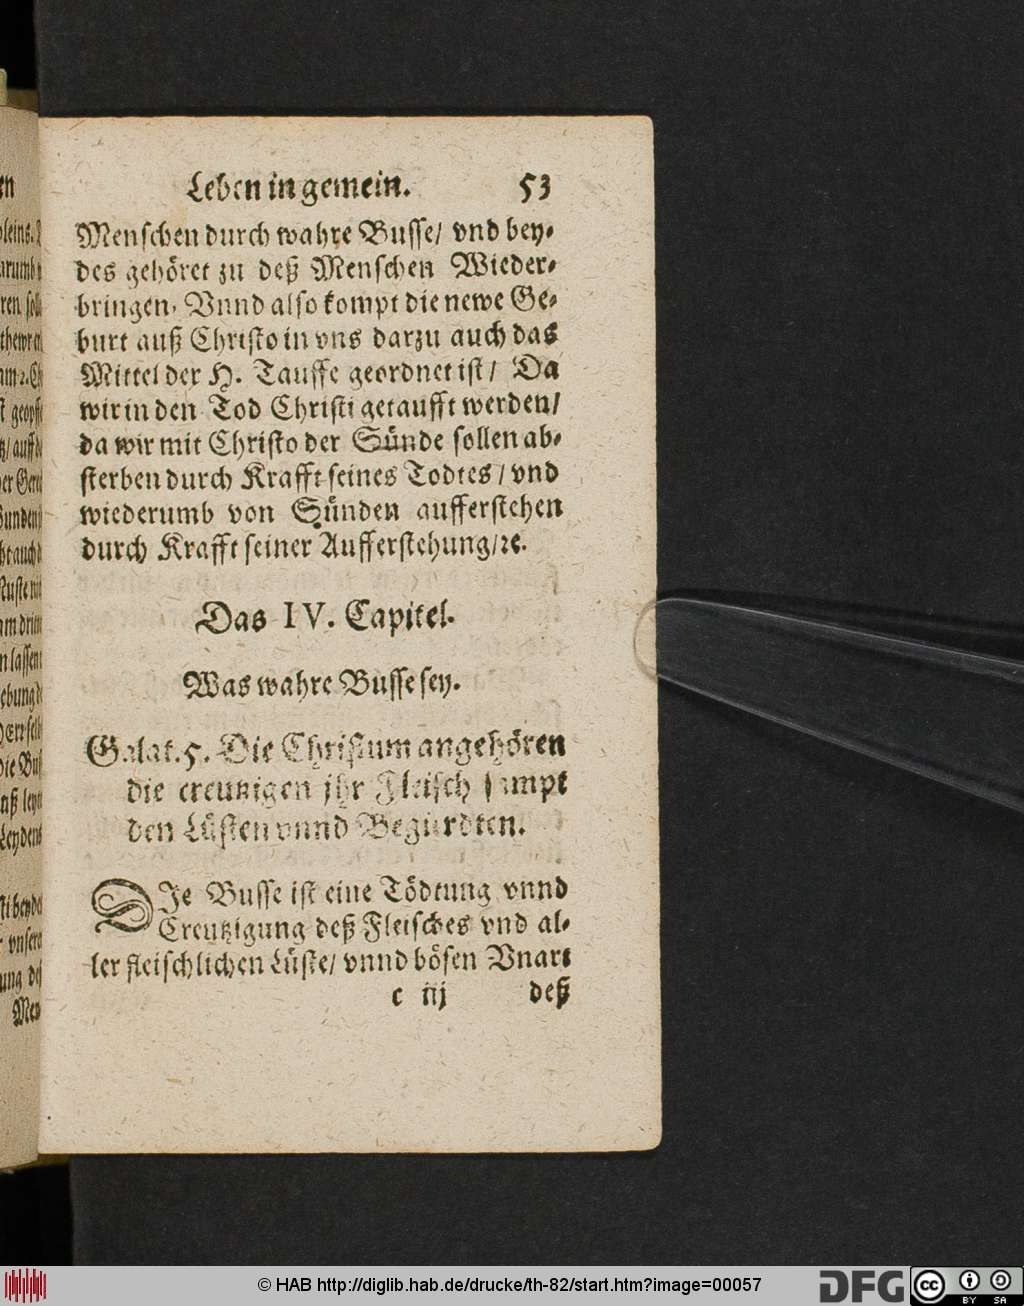 Leben in gemein. 53
Menschen durch wahre Busse/ vnd bey-
des gehöret zu deß Menschen Wieder-
bringen. Vnnd also kompt die newe Ge-
burt auß Christo in vns darzu auch das
Mittel der H. Tauffe geordnet ist/ Da
wir in den Tod Christi getaufft werden/
da wir mit Christo der Sünde sollen ab-
sterben durch Krafft seines Todtes/ vnd
wiederumb von Sünden aufferstehen
durch Krafft seiner Aufferstehung/ ꝛc.
Das IV. Capitel.
Was wahre Busse sey.
Galat. 5. Die Christum angehören
die creutzigen jhr Fleisch sampt
den Lüsten vnnd Begierdten.
DIe Busse ist eine Tödtung vnnd
Creutzigung deß Fleisches vnd al-
ler fleischlichen Lüste/ vnnd bösen Vnart
c iij deß
© HAB http://diglib.hab.de/drucke/th-82/start.htm?image=00057
DFG
cc BY SA